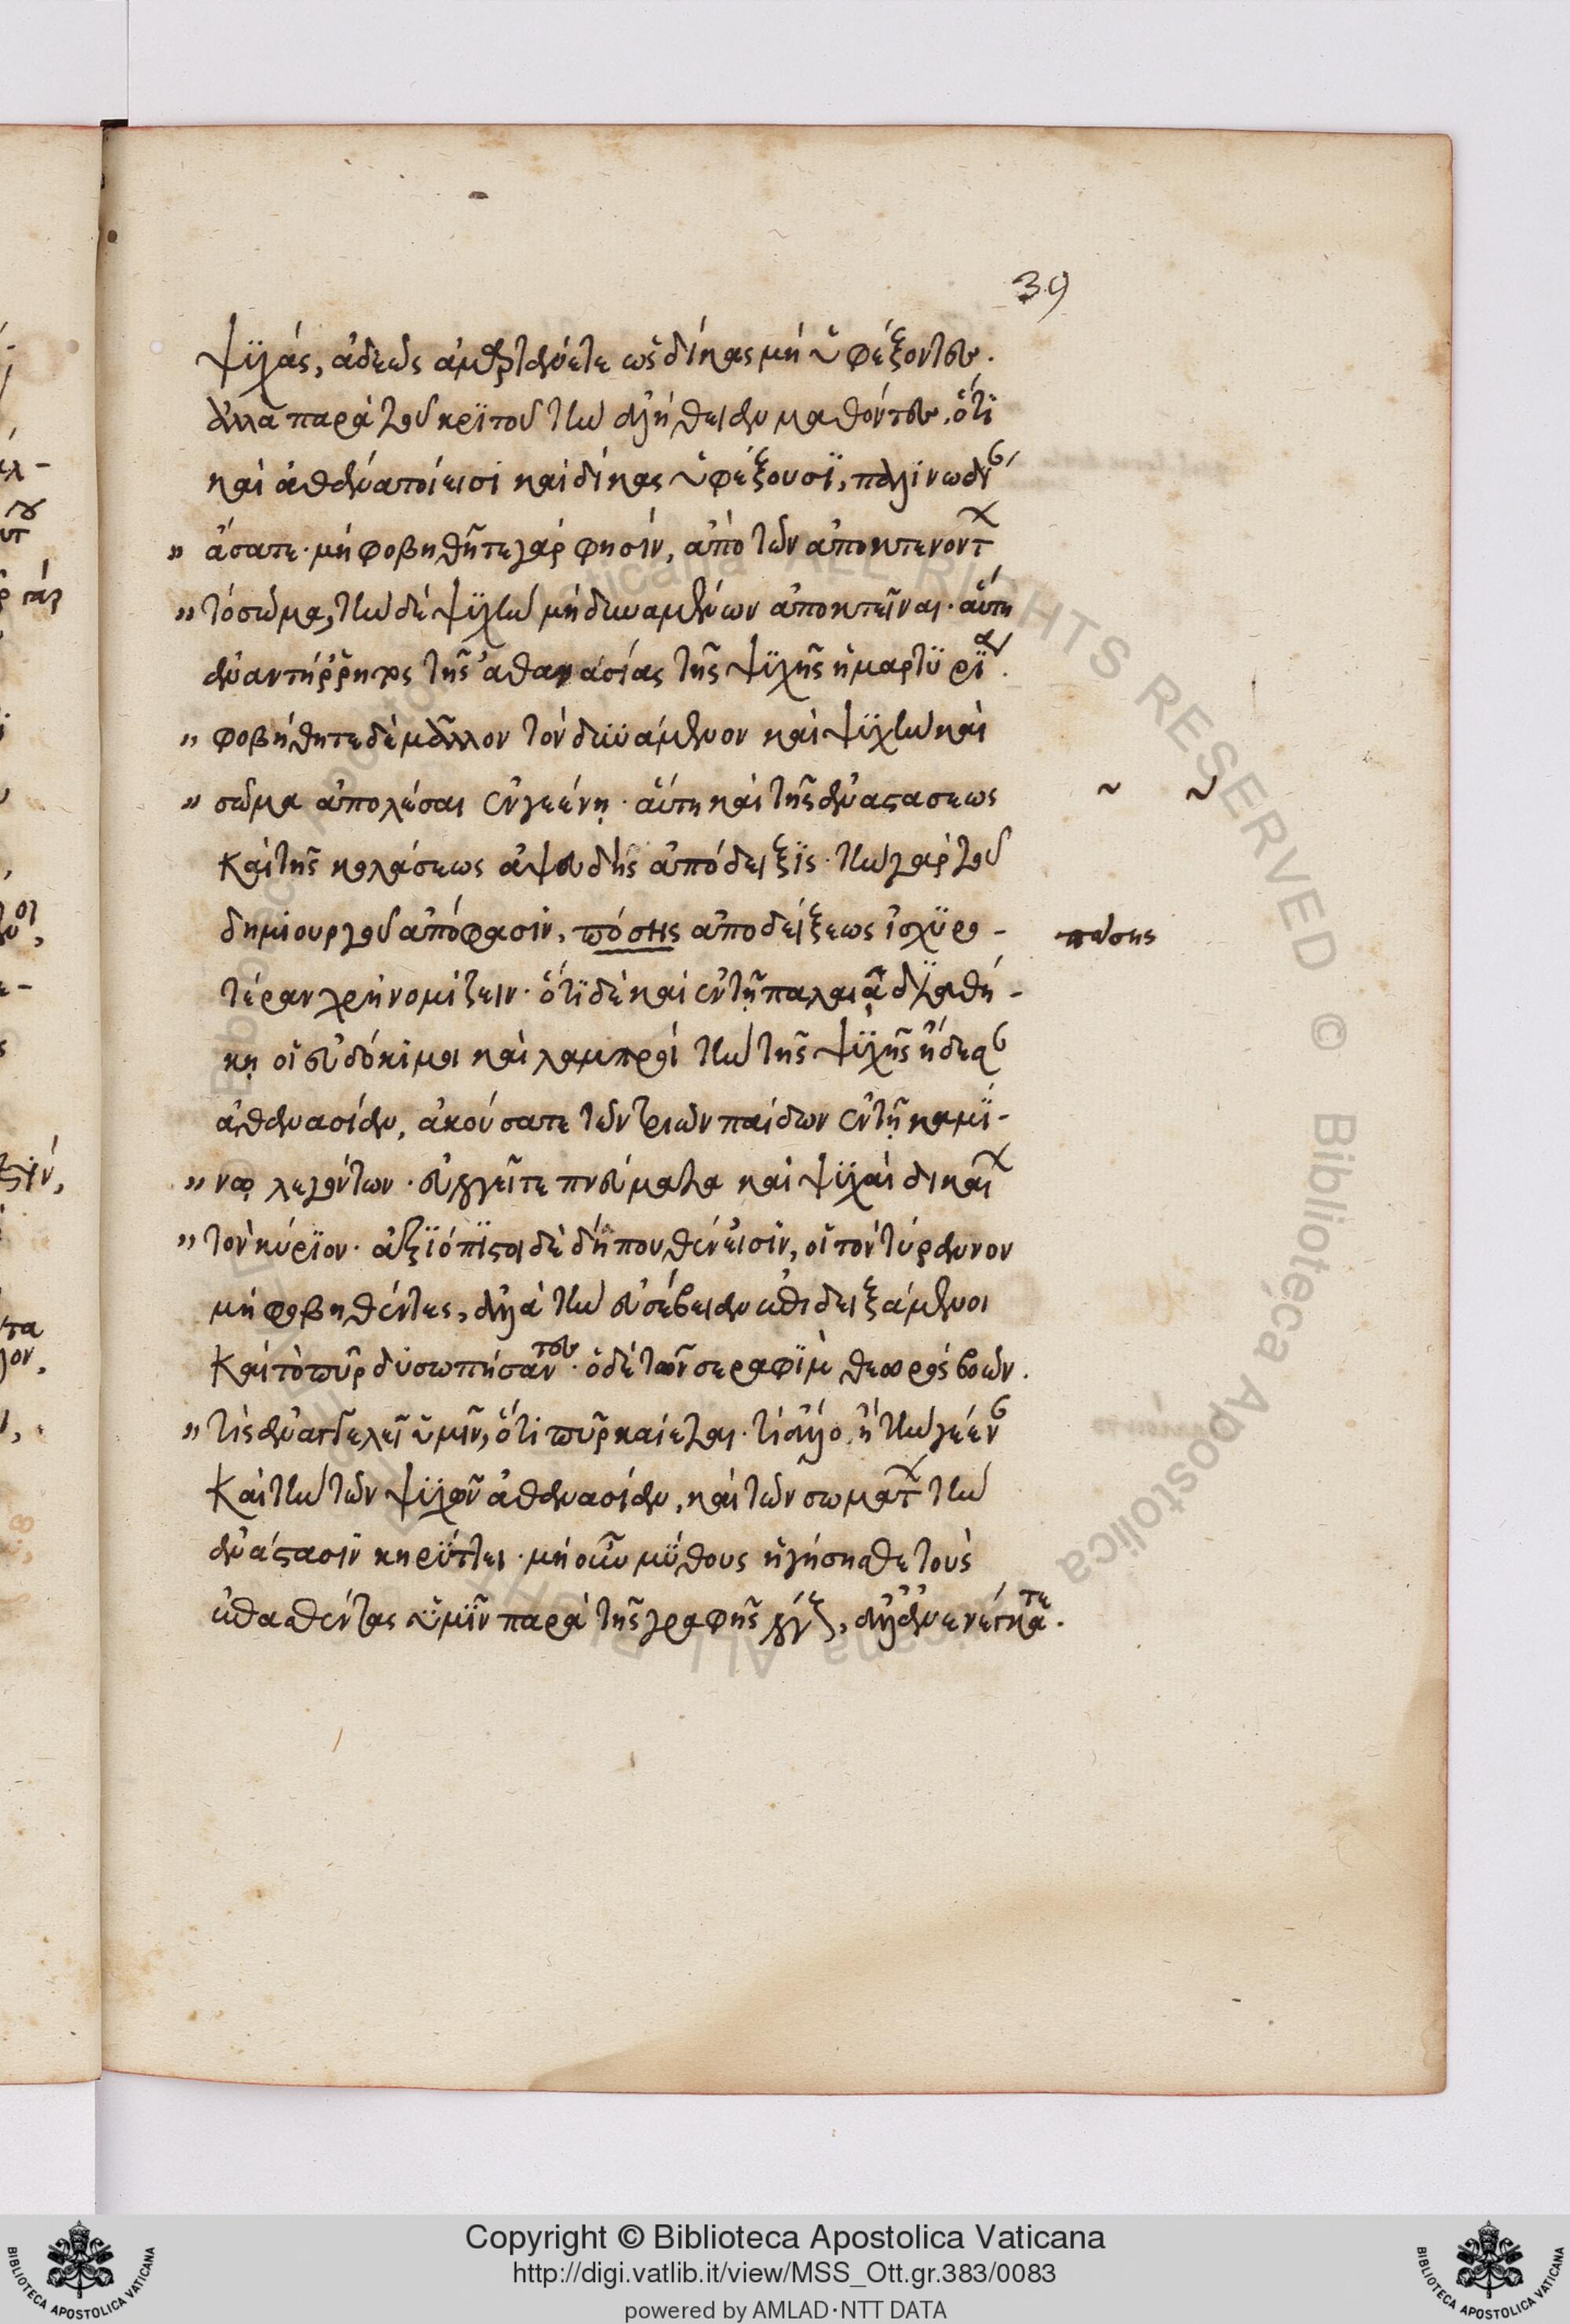 39
ψϋχάς, ἀδεῶς ἁμαρτάνετε ὡς δίκας μὴ ὑφέξοντες.
ἀλλὰ παρὰ τοῦ κριτοῦ τὴν ἀλήθειαν μαθόντες, ὅτι
καὶ ἀθάνατοί εἰσι καὶ δίκας ὑφέξουσι, παλινωδίαν
" ᾄσατε· μὴ φοβηθῆτε γάρ φησιν, ἀπὸ τῶν ἀποκτενόντων
" τὸ σῶμα, τὴν δὲ ψϋχὴν μὴ δυναμένων ἀποκτεῖναι· αὕτη
ἀναντίρρητος τῆς ἀθανασίας τῆς ψϋχῆς ἡ μαρτυρία.
" φοβήθητε δὲ μᾶλλον τὸν δυνάμενον καὶ ψϋχὴν καὶ
" σῶμα ἀπολέσαι ἐν γεέννῃ· αὕτη καὶ τῆς ἀναστάσεως
καὶ τῆς κολάσεως ἀψευδὴς ἀπόδειξις· τὴν γὰρ τοῦ
δημιουργοῦ ἀπόφασιν, πόσης ἀποδείξεως ἰσχυρο-
πάσης
τέραν χρὴ νομίζειν· ὅτι δὲ καὶ ἐν τῇ παλαιᾷ διαθή-
κῃ οἱ εὐδόκιμοι καὶ λαμπροὶ τὴν τῆς ψϋχῆς ᾔδεσαν
ἀθανασίαν, ἀκούσατε τῶν τριῶν παίδων ἐν τῇ καμί-
" νῳ λεγόντων· εὐλογεῖτε πνεύματα καὶ ψϋχαὶ δικαίων
" τὸν κύριον· ἀξιόπιστοι δὲ δήπουθέν εἰσιν, οἱ τὸν τύραννον
μὴ φοβηθέντες, ἀλλὰ τὴν εὐσέβειαν ἐπιδειξάμενοι
καὶ τὸ πῦρ δυσωπήσαντες· ὁ δὲ τῶν σεραφὶμ θεωρὸς βοῶν.
" τίς ἀναγγελεῖ ὑμῖν, ὅτι πῦρ καίεται· τί ἄλλο ἢ τὴν γέενναν
καὶ τὴν τῶν ψϋχῶν ἀθανασίαν, καὶ τῶν σωμάτων τὴν
ἀνάστασιν κηρύττει· μὴ οὖν μύθους ἡγήσησθε τοὺς
ἐπαχθέντας ὑμῖν παρὰ τῆς γραφῆς
Copyright © Biblioteca Apostolica Vaticana
http://digi.vatlib.it/view/MSS_Ott.gr.383/0083
powered by AMLAD·NTT DATA